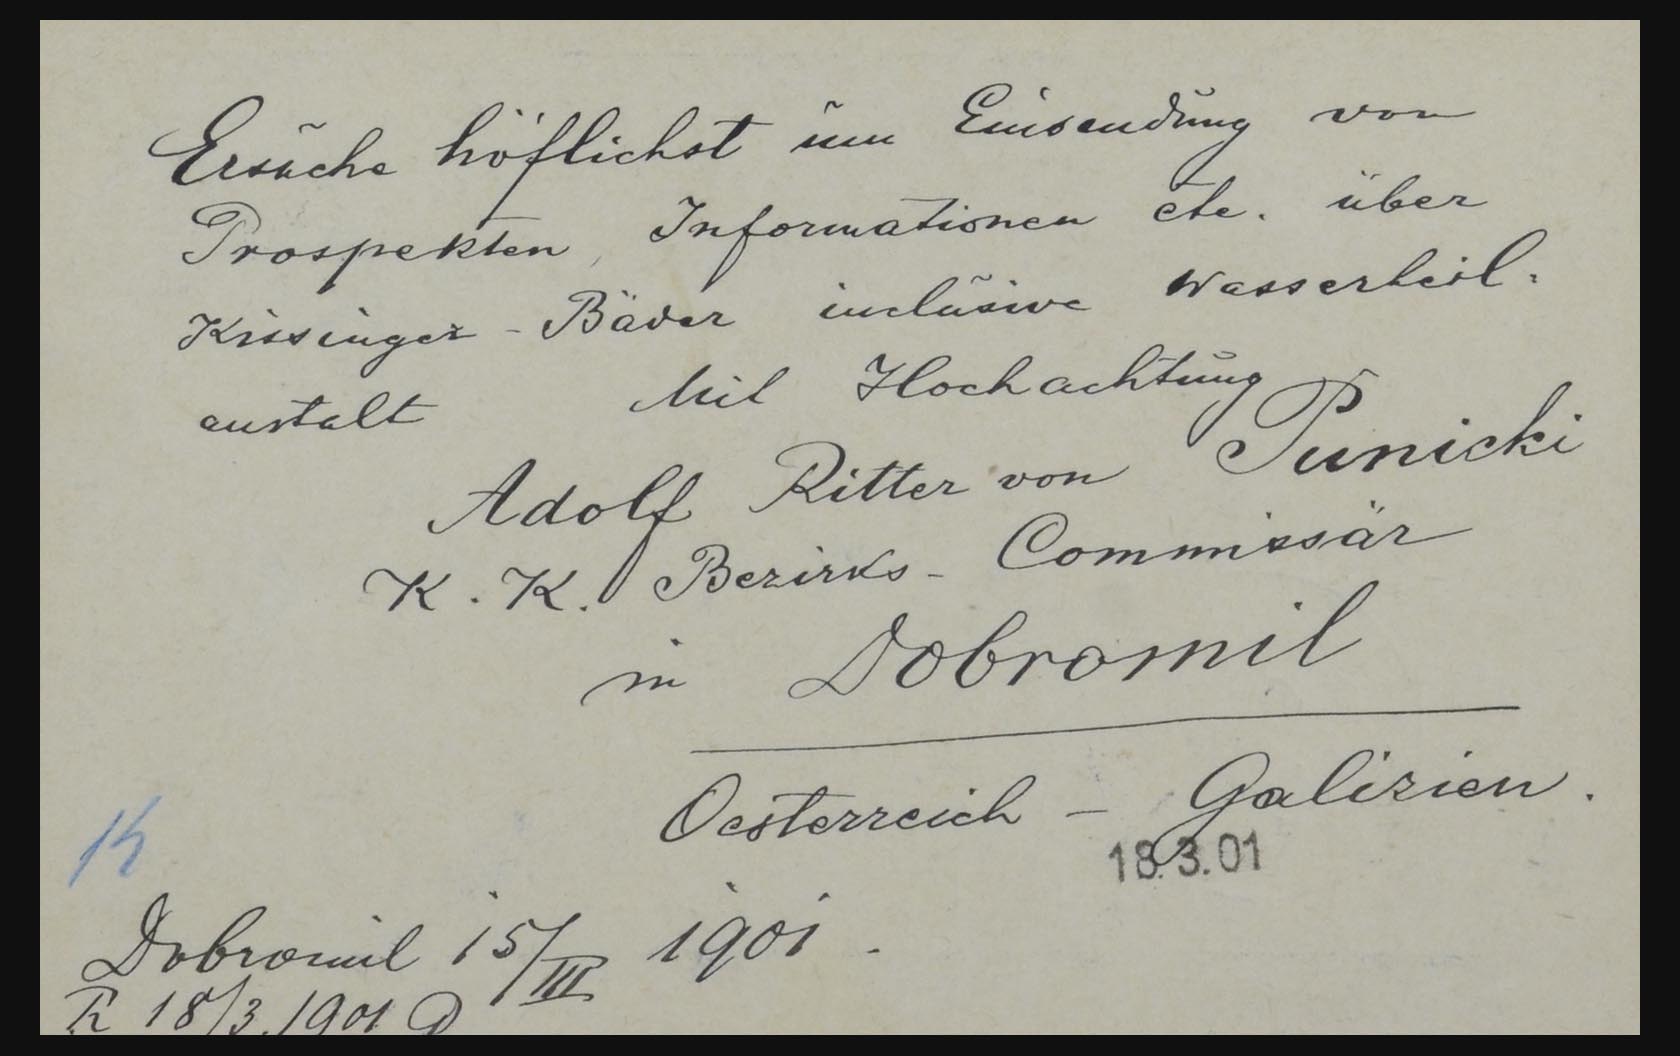 Ersuche höflichst um Einsendung von
Prospekten, Informationen etc. über
Kissinger-Bäder inclusive Wasserheil-
anstalt Mit Hochachtung
Adolf Ritter von Punicki
K. K. Bezirks-Commissär
in Dobromil
Oesterreich – Galizien.
18.3.01
Dobromil 15/III 1901.
R 18/3. 1901